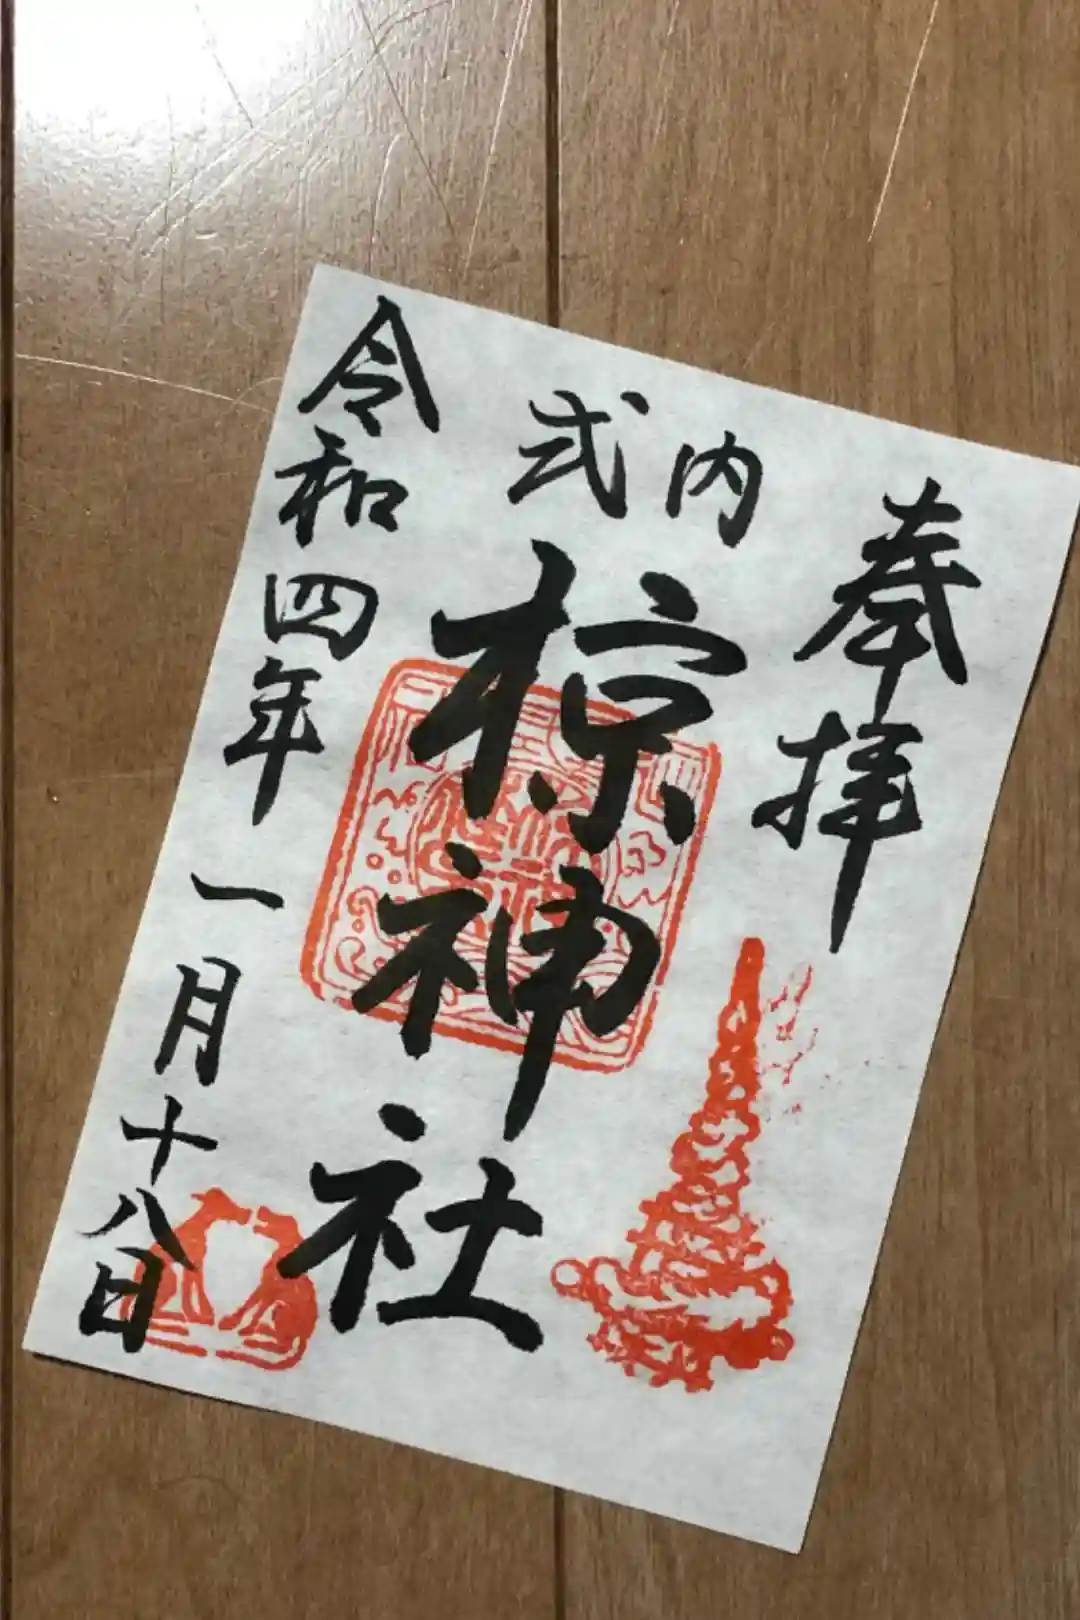 奉拝
式内
椋神社
令和四年一月十八日